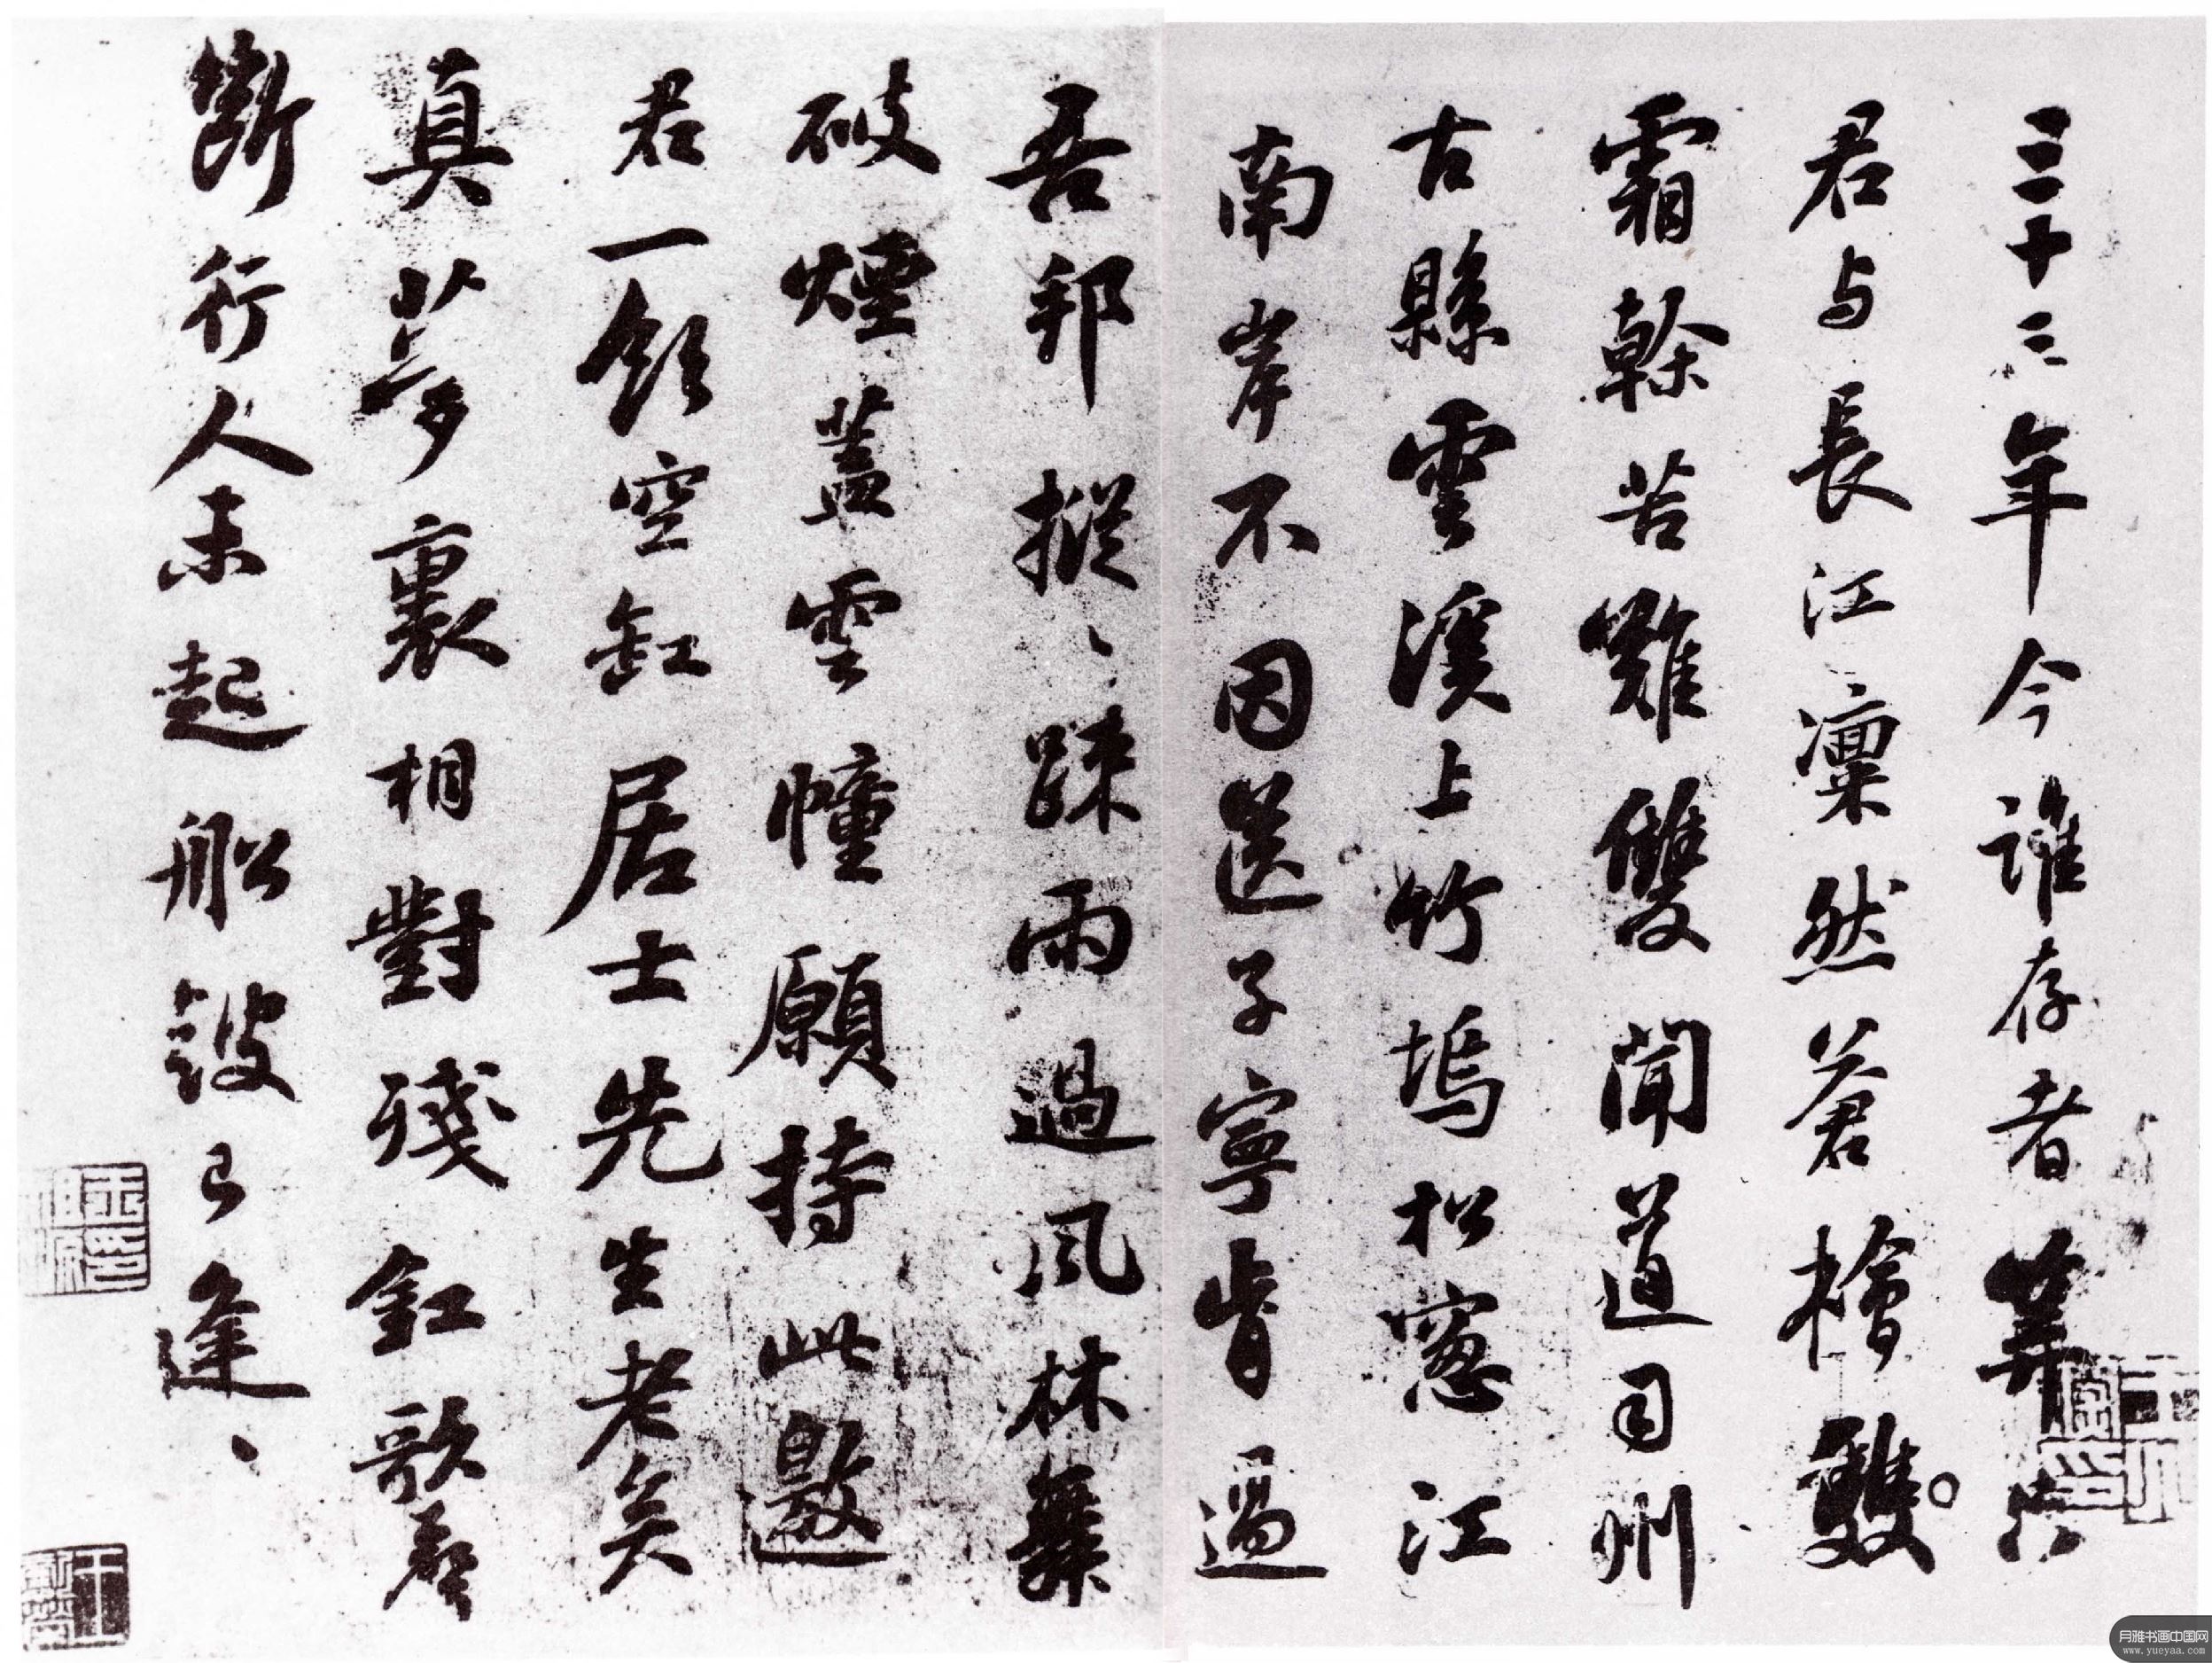 三十三年今誰存者筭只
君与長江凜然蒼檜雙
霜幹苦難雙聞道司州
古縣雲溪上竹塢松窻江
南岸不因送子寧肯過
吾邦摐〻踈雨過風林舞
破煙蓋雲幢願持此邀
君一飲空缸居士先生老矣
真夢裏相對殘釭歌聲
斷行人未起船鼓已逢〻
月雅书画中国网
www.yueyaa.com